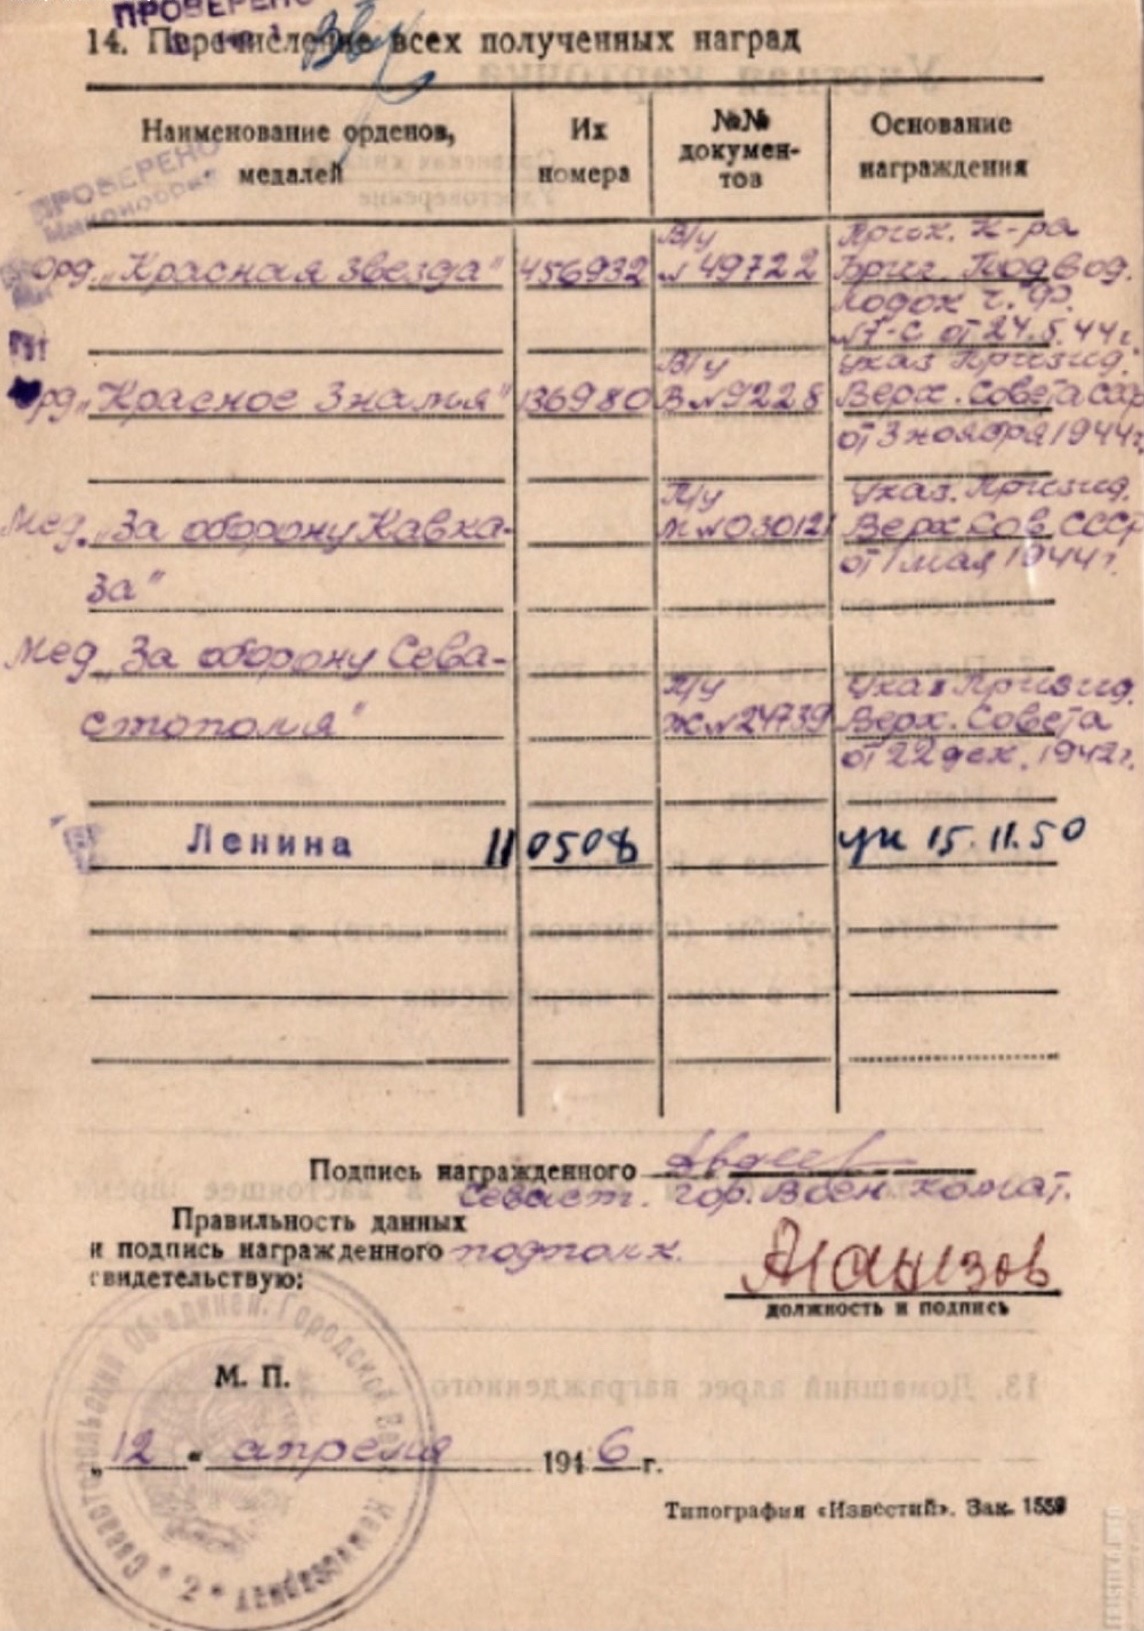 ПРОВЕРЕНО
14. Перечисление всех полученных наград
Наименование орденов, медалей
Их номера
№№ документов
Основание награждения
ПРОВЕРЕНО
Орд. „Красная Звезда"
456932
В/у
№ 49722
Приk. К-ра
Бриг. Подвод.
Лодок Ч.Ф.
№7-С от 24.5.44г.
Орд „Красное Знамя"
136980
В/у
В №9228
Указ Призид.
Верх. Совета ССР
от 3 ноября 1944г.
Мед. „За оборону Кавка-
за"
П/у
М №030121
Указ. Призид.
Верх. Сов. СССР
от 1 мая 1944г.
Мед „За оборону Сева-
стополя"
П/у
Ж №24739
Указ Призид.
Верх. Совета
от 22 дек. 1942г.
Ленина
110508
ук 15.11.50
Подпись награжденного
Севаст. гор. Воен комат.
Правильность данных
и подпись награжденного подполк.
свидетельствую:
должность и подпись
М. П.
„12" апреля 1946 г.
Типография «Известий». Зак. 1559
Севастопольский Объединен. Городской Военный Комиссариат * 2 *
13. Домашний адрес награжденного